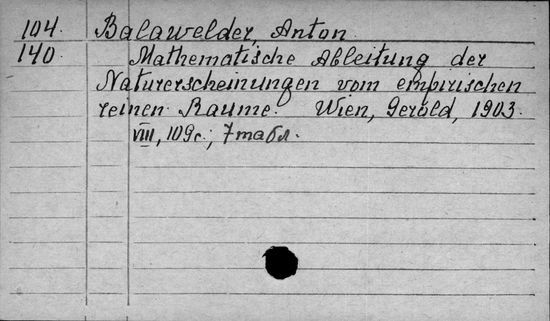 104. Balawelder, Anton.
140. Mathematische Ableitung der
Naturerscheinungen vom empirischen
reinen Raume. Wien, Gerold, 1903.
VIII, 109 с.; 7 табл.